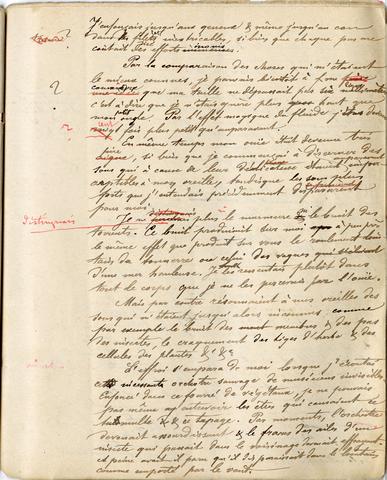 J'enfonçais jusqu'aux genoux & même jusqu'au cou
dans les inextricables, si bien que chaque pas me
coûtait des efforts inouïs
Par la comparaison des choses qui m'étaient
le mieux connues, je pouvais bientôt
que ma taille ne dépassait pas six
c'est à dire que je n'étais guère plus haut que
mon ongle. Par l'effet magique du fluide j'étais
cent fois plus petit qu'auparavant.
En même temps mon ouïe était devenue très
fine, si bien que je commençai à discerner des
sons qui à cause de leur délicatesse étaient
à mes oreilles, tandis que les sons plus
forts que j'entendais précédemment
pour moi.
distinguais
Je ne plus le murmure & le bruit des
torrents. Ce bruit produisait sur moi à peu près
le même effet que produit sur vous le roulement
du tonnerre ou celui des vagues qui déferlent
d'une mer houleuse. Je les ressentais plutôt dans
tout le corps que je ne les percevais par l'ouïe.
Mais par contre résonnaient à mes oreilles des
sons qui m'étaient jusqu'alors inconnus, comme
par exemple le bruit des & des pas
des insectes, le craquement des tiges d'herbe & des
cellules des plantes & &
L'effroi s'empara de moi lorsque j'écoutai
cet orchestre sauvage de musiciens invisibles
Enfoncé dans ce fourré de végétaux je ne pouvais
pas même apercevoir les êtres qui causaient ce
& ce tapage. Par moments, l'orchestre
devenait assourdissant & le frou des ailes d'un
insecte qui passait dans le voisinage devenait effrayant
à peine avait-il paru qu'il disparaissait dans le
comme emporté par le vent.